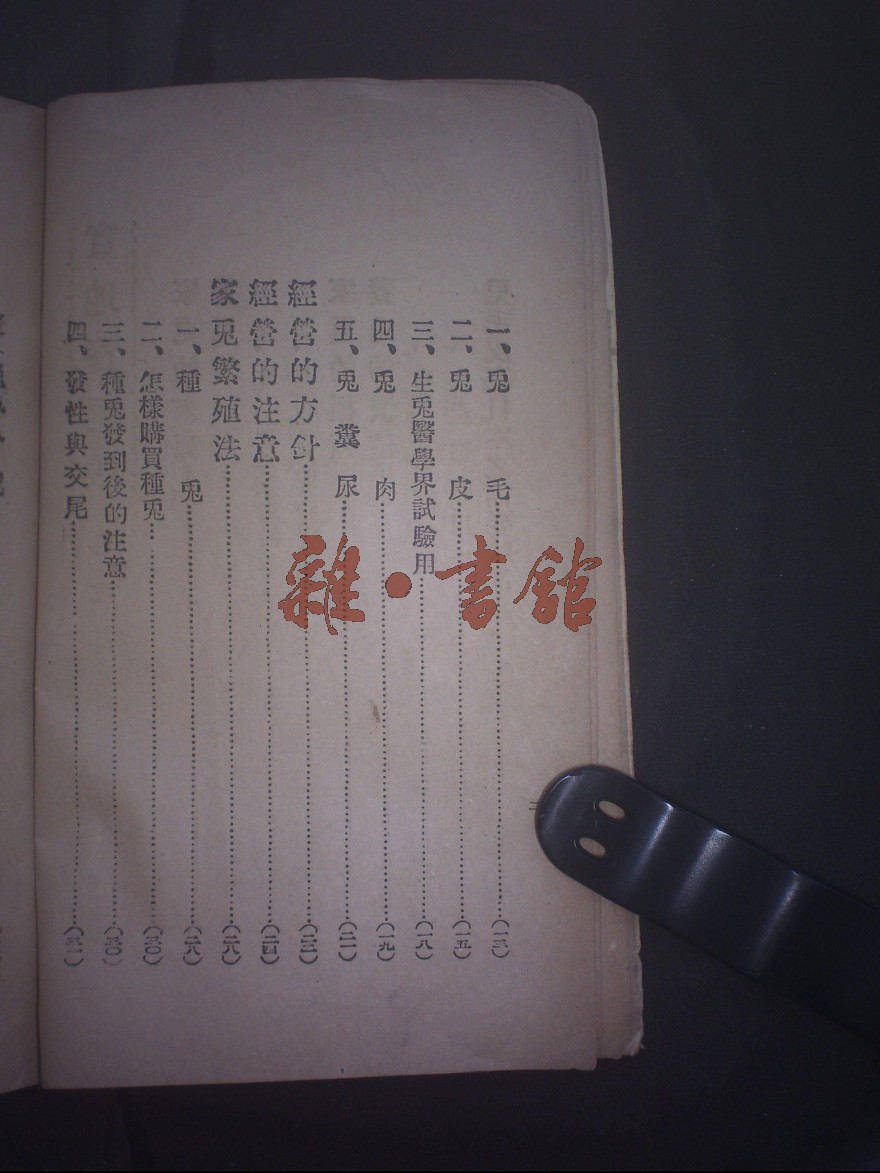 一、兎毛……………(一三)
二、兎皮……………(一五)
三、生兎醫學界試驗用……………(一八)
四、兎肉……………(一九)
五、兎糞尿……………(二一)
經營的方針……………(二三)
經營的注意……………(二四)
家兎繁殖法……………(二八)
一、種兎……………(二八)
二、怎樣購買種兎……………(三〇)
三、種兎發到後的注意……………(三〇)
四、發性與交尾……………(三一)
二
雜·書館